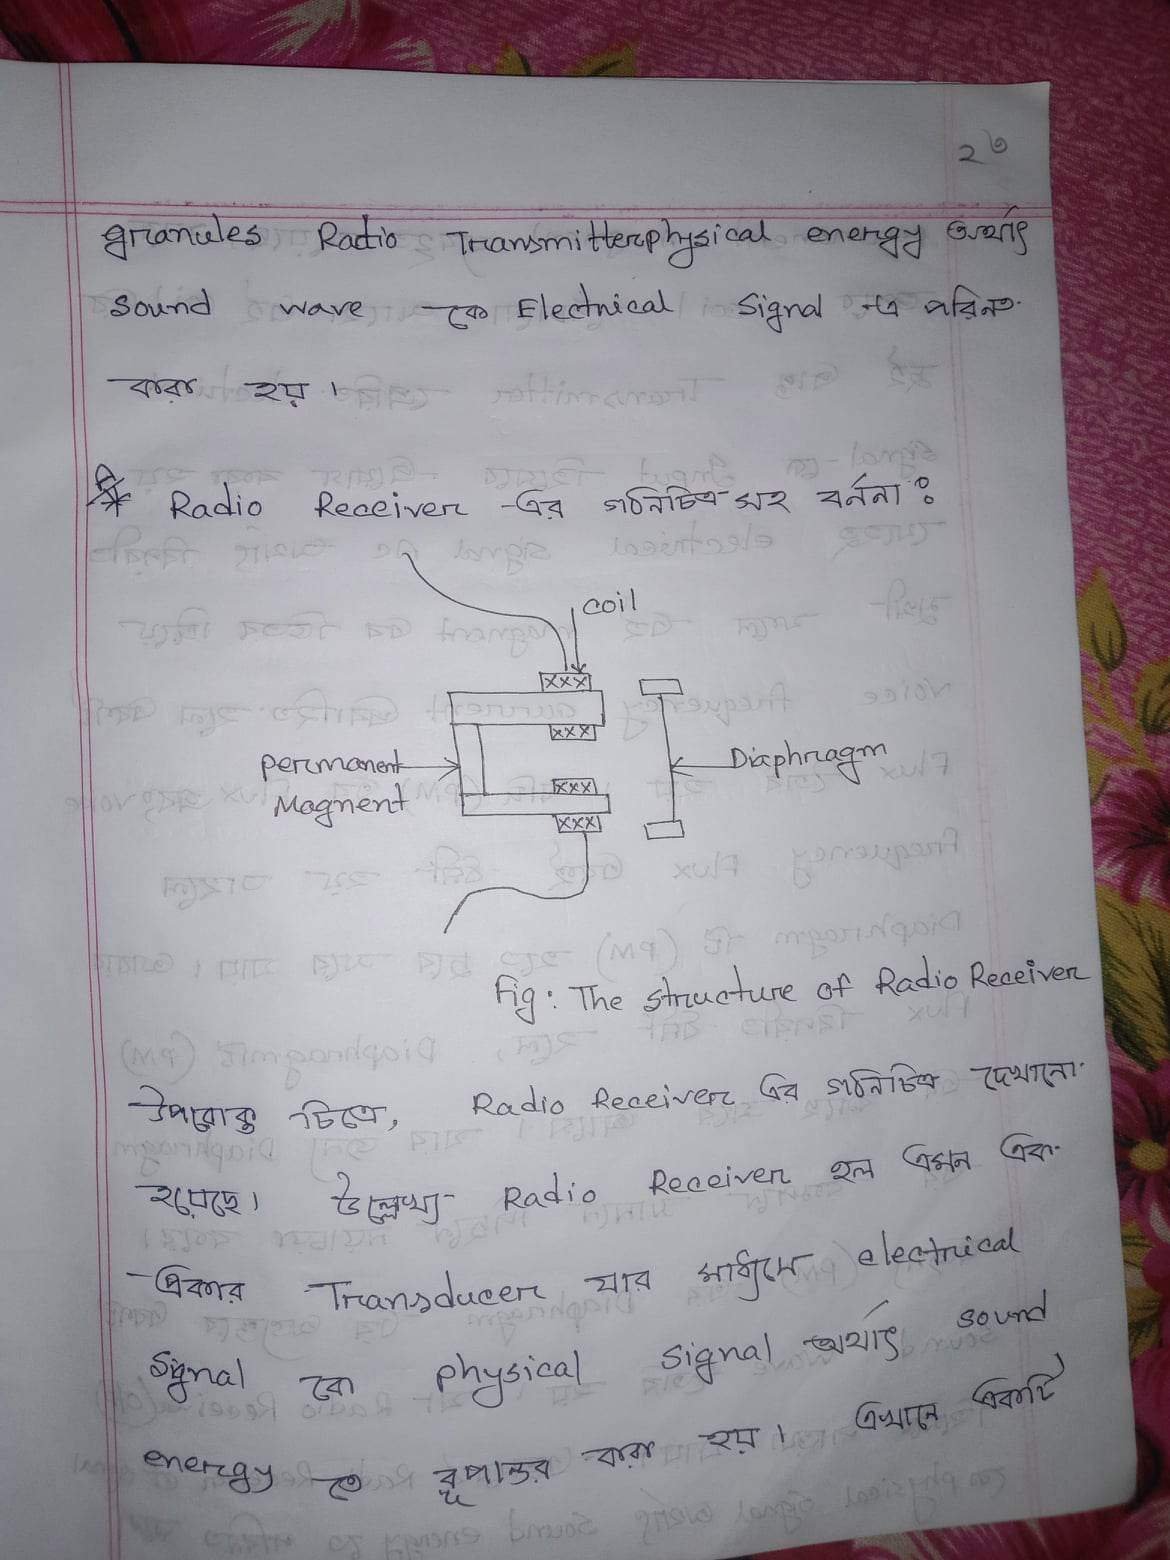 ২৩
granules Radio Transmitter physical energy অর্থাৎ
sound wave কে Electrical Signal এ পরিনত
করা হয়।
* Radio Receiver এর গঠনচিত্র সহ বর্ননা :
coil
xxx
xxx
permanent
Diaphragm
xxx
Magnent
xxx
Fig : The structure of Radio Receiver
উপরোক্ত চিত্রে, Radio Receiver এর গঠনচিত্র দেখানো
হয়েছে। উল্লেখ্য Radio Receiver হল এমন এক
প্রকার Transducer যার মাধ্যমে electrical
Signal কে physical signal অর্থাৎ sound
energy তে রূপান্তর করা হয়। এখানে একটি